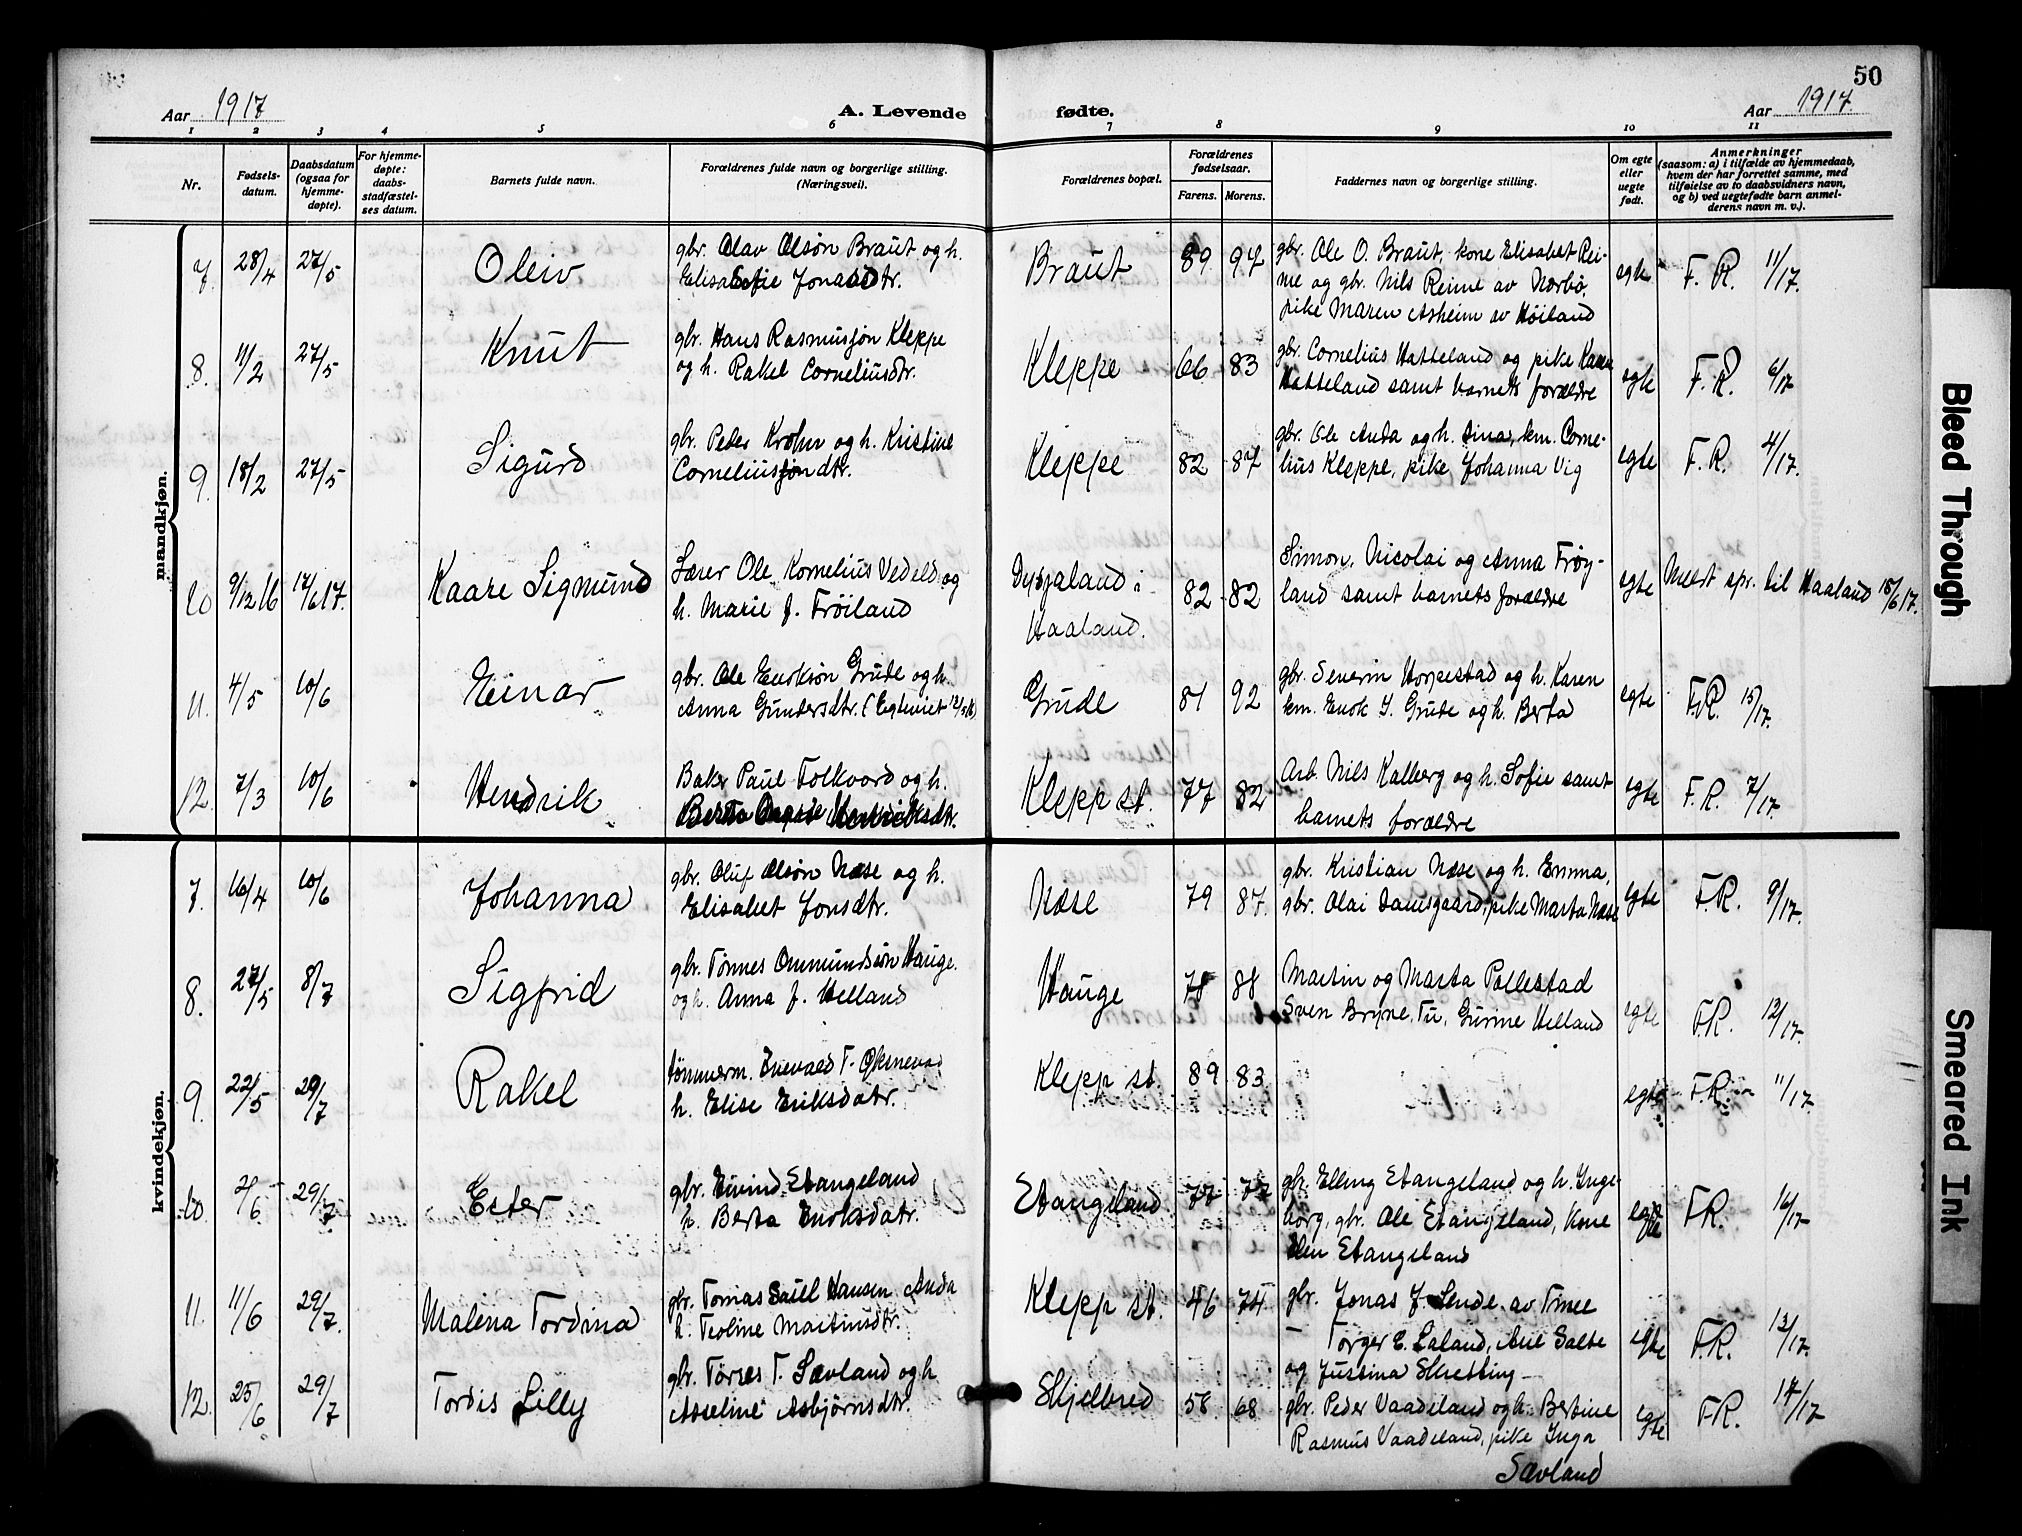 50
Aar 1917 A. Levende fødte. Aar 1917.
1 2 3 4 5 6 7 8 9 10 11
Nr. Fødsels-datum. Daabsdatum (ogsaa for hjemme-døpte). For hjemme-døpte: daabs-stadfæstel-ses datum. Barnets fulde navn. Forældrenes fulde navn og borgerlige stilling. (Næringsvei). Forældrenes bopæl. Forældrenes fødselsaar. Farens. Morens. Faddernes navn og borgerlige stilling. Om egte eller uegte født. Anmerkninger (saasom: a) i tilfælde av hjemmedaab, hvem der har forrettet samme, med tilføielse av to daabsvidners navn, og b) ved uegtefødte barn anmel-derens navn m. v.).
mandkjøn.
7. 28/4 27/5 Oleiv gbr. Olav Olsøn Braut og h. Braut 89 97 gbr. Ole O. Braut, kone Elisabet Rei- egte F. R. 11/17.
Sofie Jonasdtr. me og gbr. Nils Reime av Nærbø,
pike Maren Asheim av Høiland
8. 11/2 27/5 Knut gbr. Hans Rasmussøn Kleppe Kleppe 66 83 gbr. Cornelius Hatteland og pike Karen egte F. R. 6/17
og h. Rakel Corneliusdtr. Hatteland samt barnets forældre
9. 18/2 27/5 Sigurd gbr. Peder Krohn og h. Kristine Kleppe 82 87 gbr. Ole Anda og h. Sina, km. Corne- egte F. R. 4/17.
Cornelius dtr. lius Kleppe, pike Johanna Vig
10 9/12 16 17/6 17. Kaare Sigmund Lærer Ole Kornelius Vedeld og Dysjaland i 82 82 Simon, Nicolai og Anna Frøy- egte Meldt spr. til Haaland 15/6 17.
h. Marie f. Frøiland Haaland. land samt barnets forældre
11. 4/5 10/6 Einar gbr. Ole Enoksøn Grude og h. Grude 81 92 gbr. Severin Horpestad og h. Karen egte F.R. 15/17.
Anna Gundersdtr. (Egteviet 12/5 16) km. Enok I. Grude og h. Berta
12. 7/3 10/6 Hendrik Baker Paul Folkvord og h. Klepp st. 77 82 Arb. Nils Kalberg og h. Sofie samt egte F. R. 7/17.
Berta Hendriksdtr. barnets forældre
kvindekjøn.
7. 16/4 10/6 Johanna gbr. Oluf Olsøn Næse og h. Næse 79 87. gbr. Kristian Næse og h. Emma, egte F.R. 9/17.
Elisabet Jonsdtr. gbr. Olai Damsgaard, pike Marta Næse
8. 27/5 8/7 Sigfrid gbr. Tønnes Ommundsøn Hauge. Hauge 78 88 Martin og Marta Pollestad egte F.R. 12/17
og h. Anna f. Helland Sven Bryne, Tu, Gurine Helland
9. 22/5 29/7 Rakel tømmerm. Enevald T. Øksnevad Klepp st. 89 83 egte F.R. 11/17.
h. Elise Eriksdatr.
10. 2/6 29/7 Ester gbr. Eivind Etangeland Etangeland 77 77 gbr. Elling Etangeland og h. Inge- egte F.R. 16/17
h. Berta Enoksdatr. borg, gbr. Ole Etangeland, Kone
Elen Etangeland
11. 11/6 29/7. Malena Tordina gbr. Tomas Saul Hansen Anda Klepp st. 46 74 gbr. Jonas J. Lende av Time egte F.R. 13/17.
h. Teoline Martinsdtr. – Torger E. Laland, Ane Salte
og Justina Skretting –
12. 25/6 29/7 Tordis Lilly gbr. Tørres T. Sævland og h Skjelbred 58 68 gbr. Peder Vaadeland og h. Bertine egte F.R. 17/17
Asseline Asbjørnsdtr. Rasmus Vaadeland, pike Inga
Sævland
Bleed Through
Smeared Ink